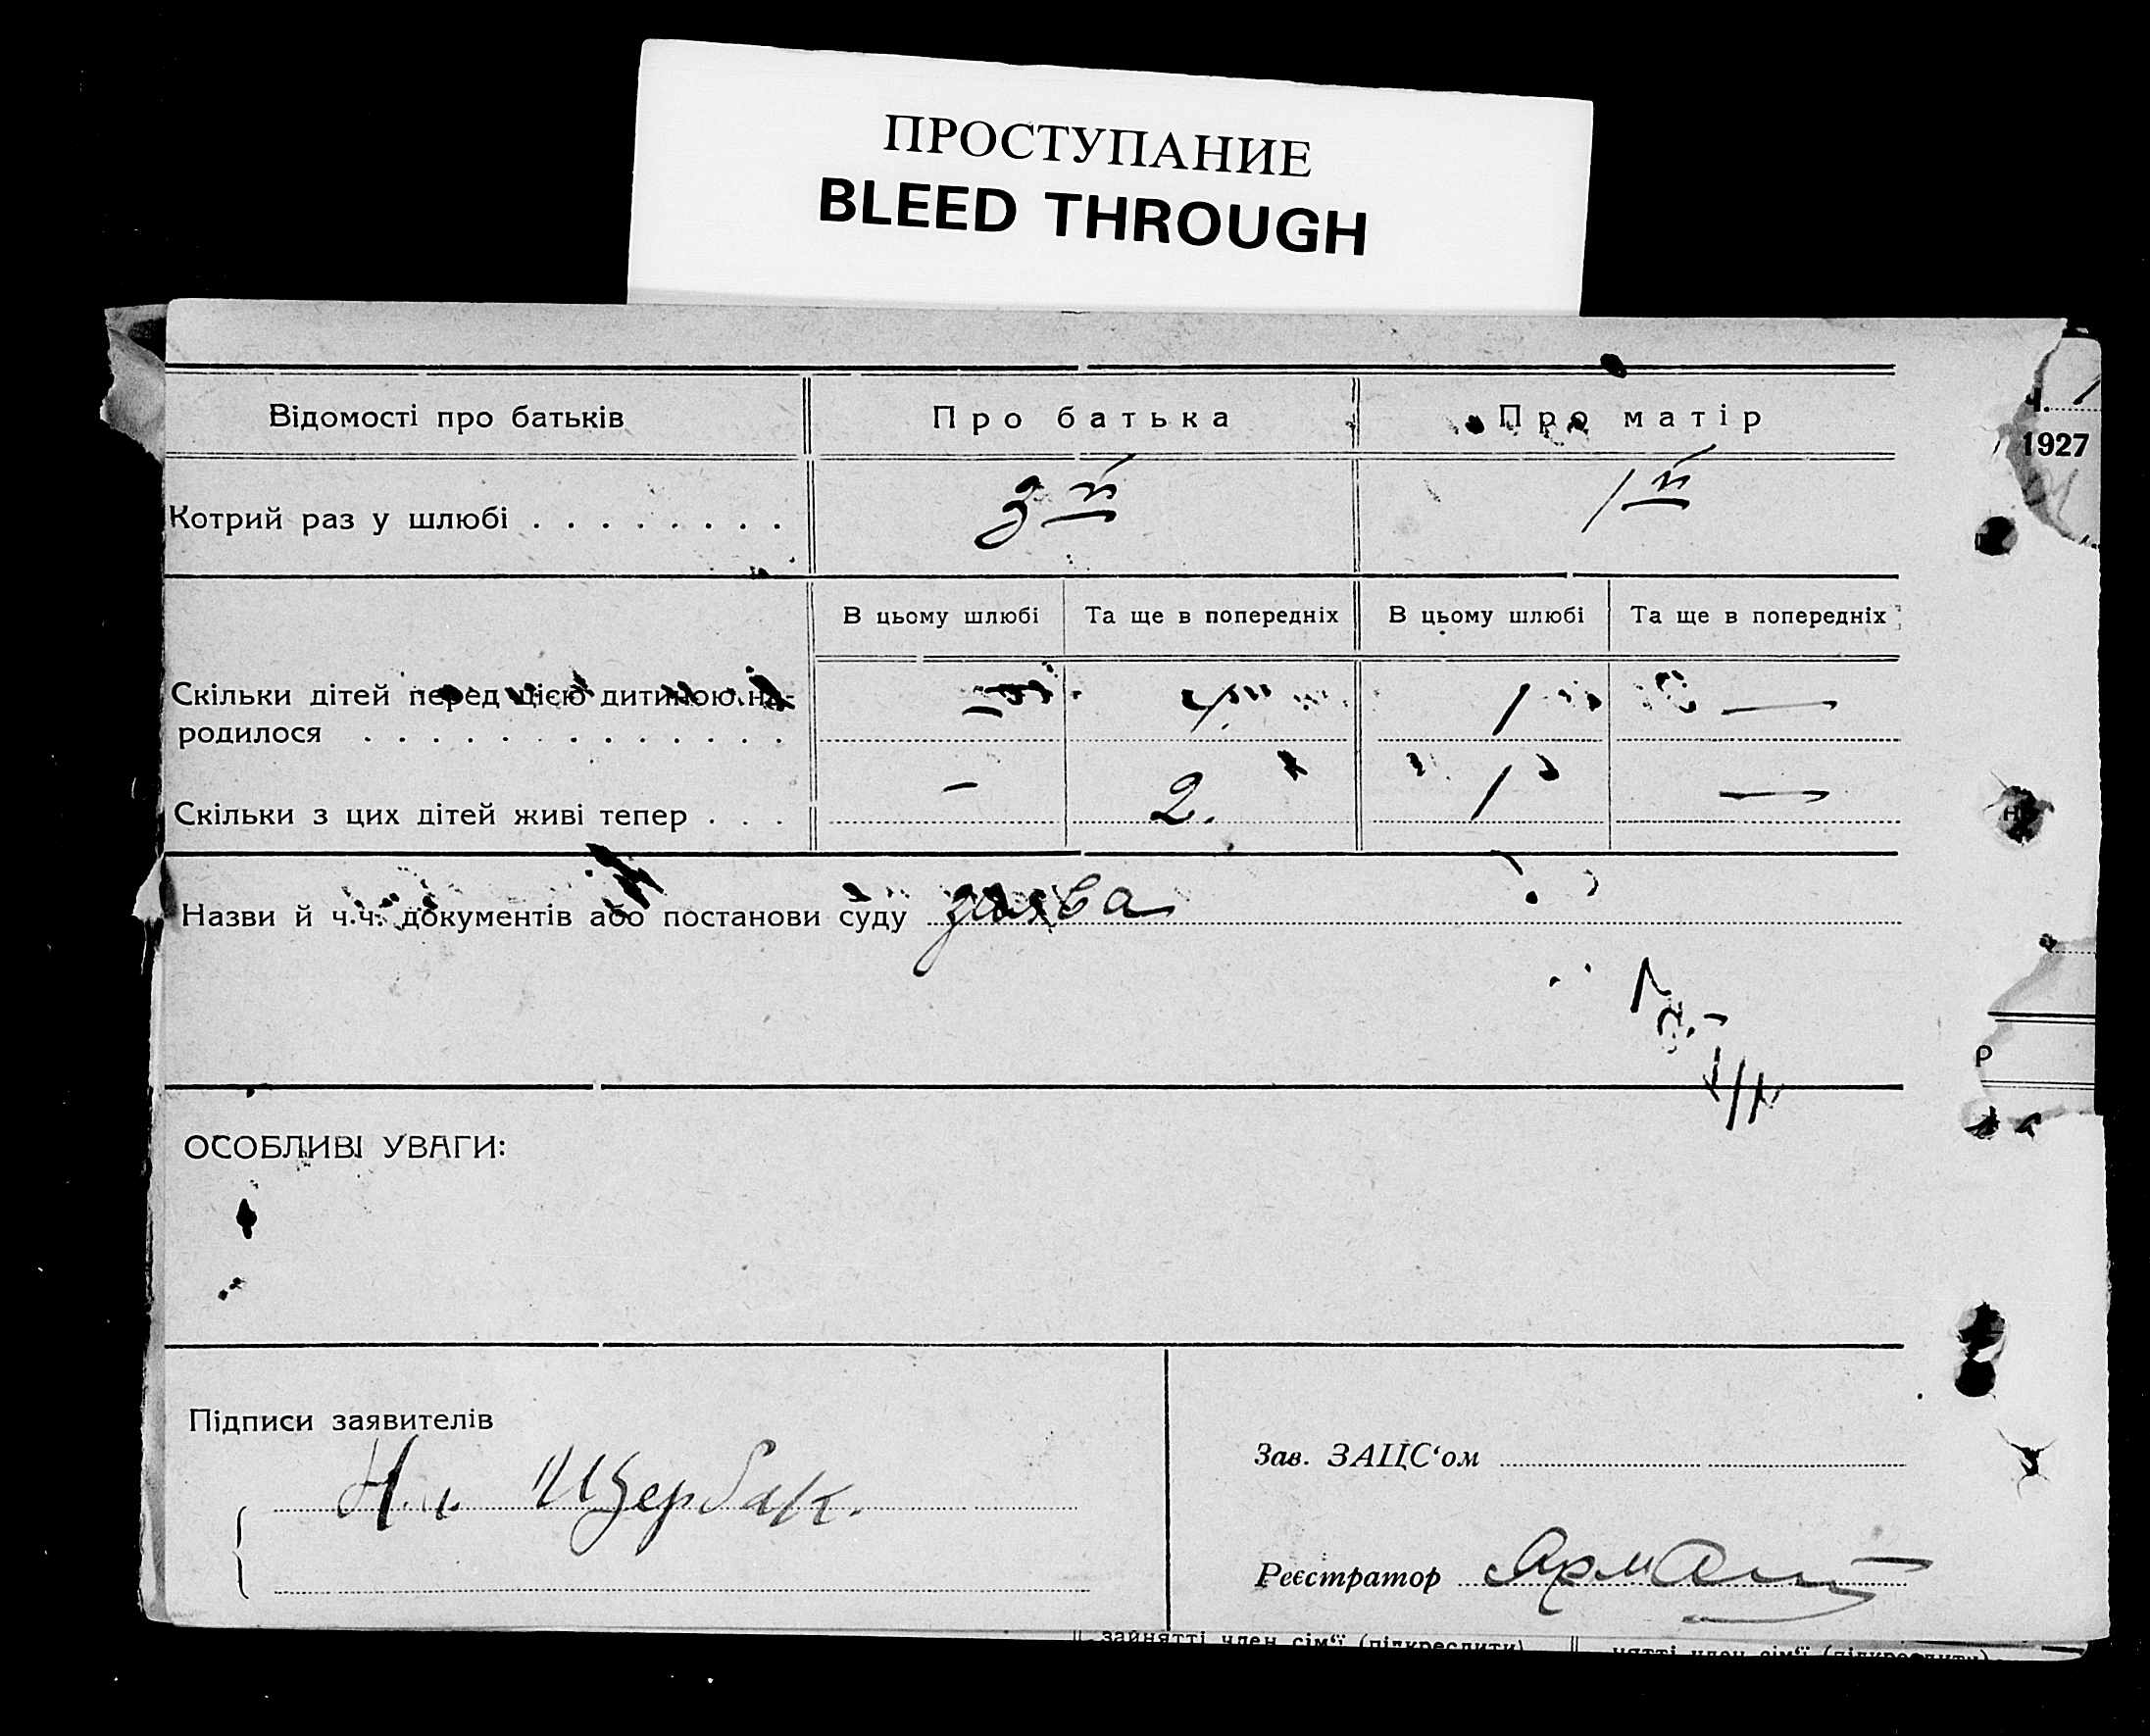 ПРОСТУПАНИЕ
BLEED THROUGH
Відомості про батьків Про батька Про матір
Ч.
1927
Котрий раз у шлюбі . . . . . . . . 3й 1й
В цьому шлюбі Та ще в попередніх В цьому шлюбі Та ще в попередніх
Скільки дітей перед цією дитиною на-
родилося . . . . . . . . . . . . . — 1 —
Скільки з цих дітей живі тепер . . . — 2. 1 —
Назви й ч.ч. документів або постанови суду заява
ОСОБЛИВІ УВАГИ:
Підписи заявителів
Н. Щербак.
Зав. ЗАЦС‘ом
Реєстратор
зайнятті член сім‘ї (підкреслити)
нятті член сім‘ї (підкреслити)